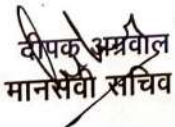 दीपक अग्रवाल
मानसेवी सचिव